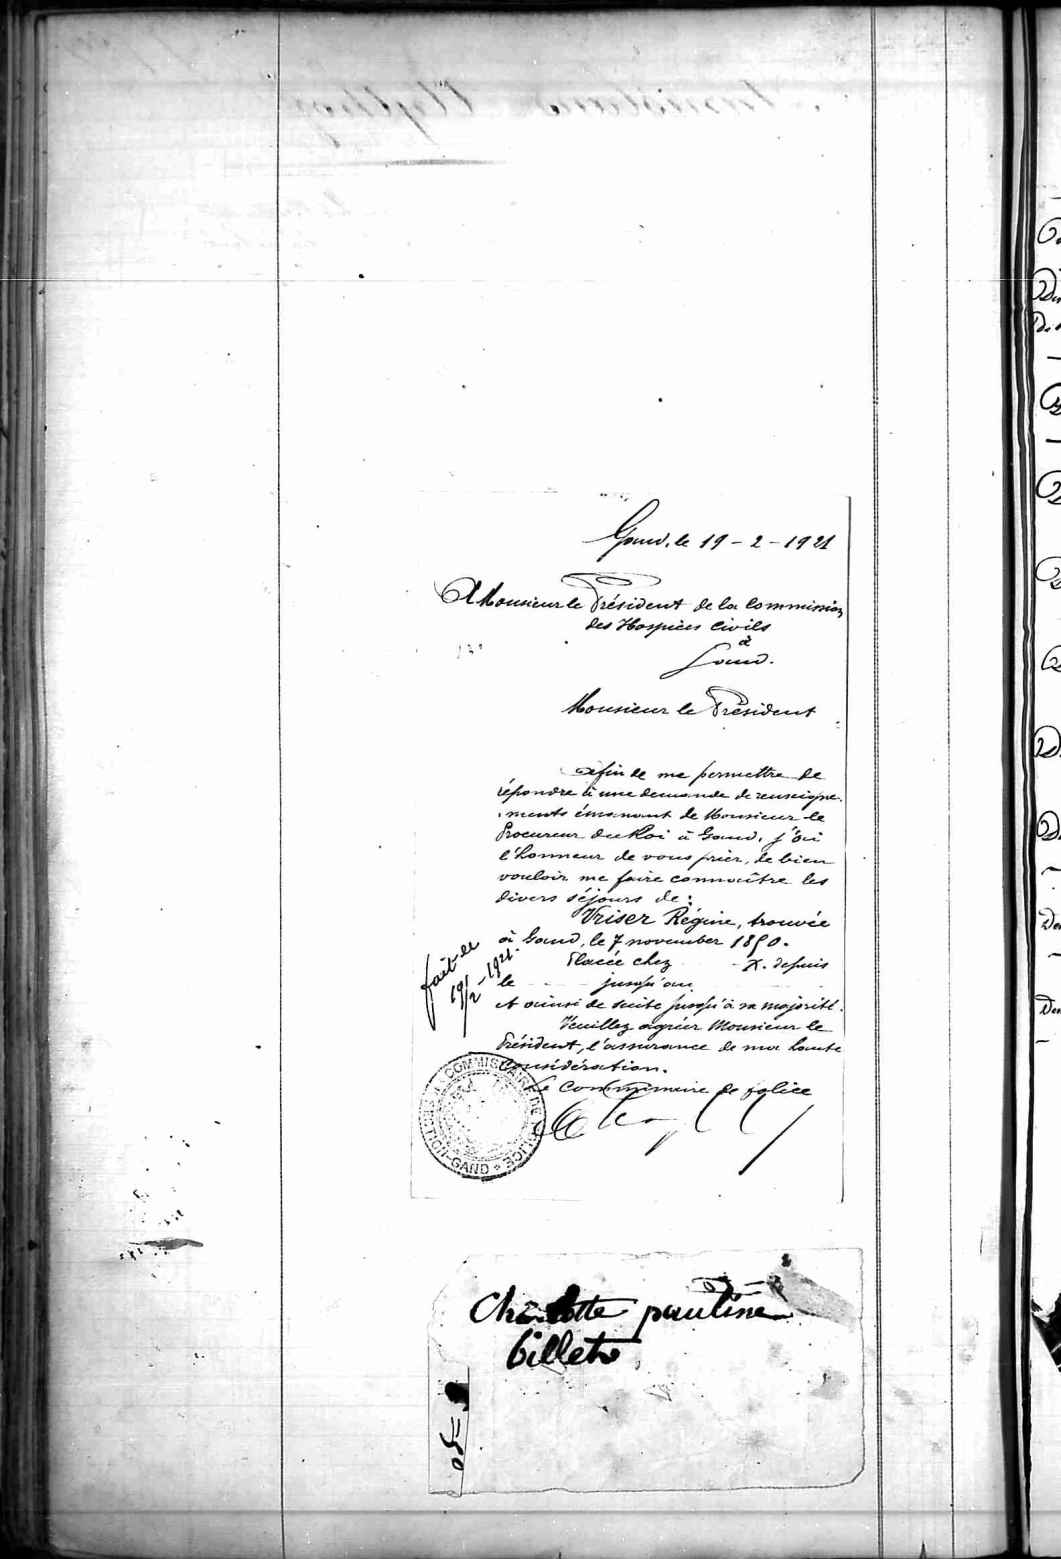 Gand, le 19 - 2 - 1921
A Monsieur le Président de la Commission
des Hospices Civils
à
Gand.
Monsieur le Président
Afin de me permettre de
répondre à une demande de renseigne-
-ments émanant de Monsieur le
Procureur du Roi à Gand, j'ai
l'honneur de vous prier, de bien
vouloir me faire connaître les
divers séjours de :
Vriser Régine, trouvée
à Gand, le 7 november 1850.
Placée chez - X. depuis
le jusqu'au
et ainsi de suite jusqu'à sa majorité.
Veuillez agréer Monsieur le
Président, l'assurance de ma haute
considération.
Le Commissaire de police
fait le
19/2 - 1921.
COMMISSAIRE DE POLICE
GAND
Charlotte pauline
billets